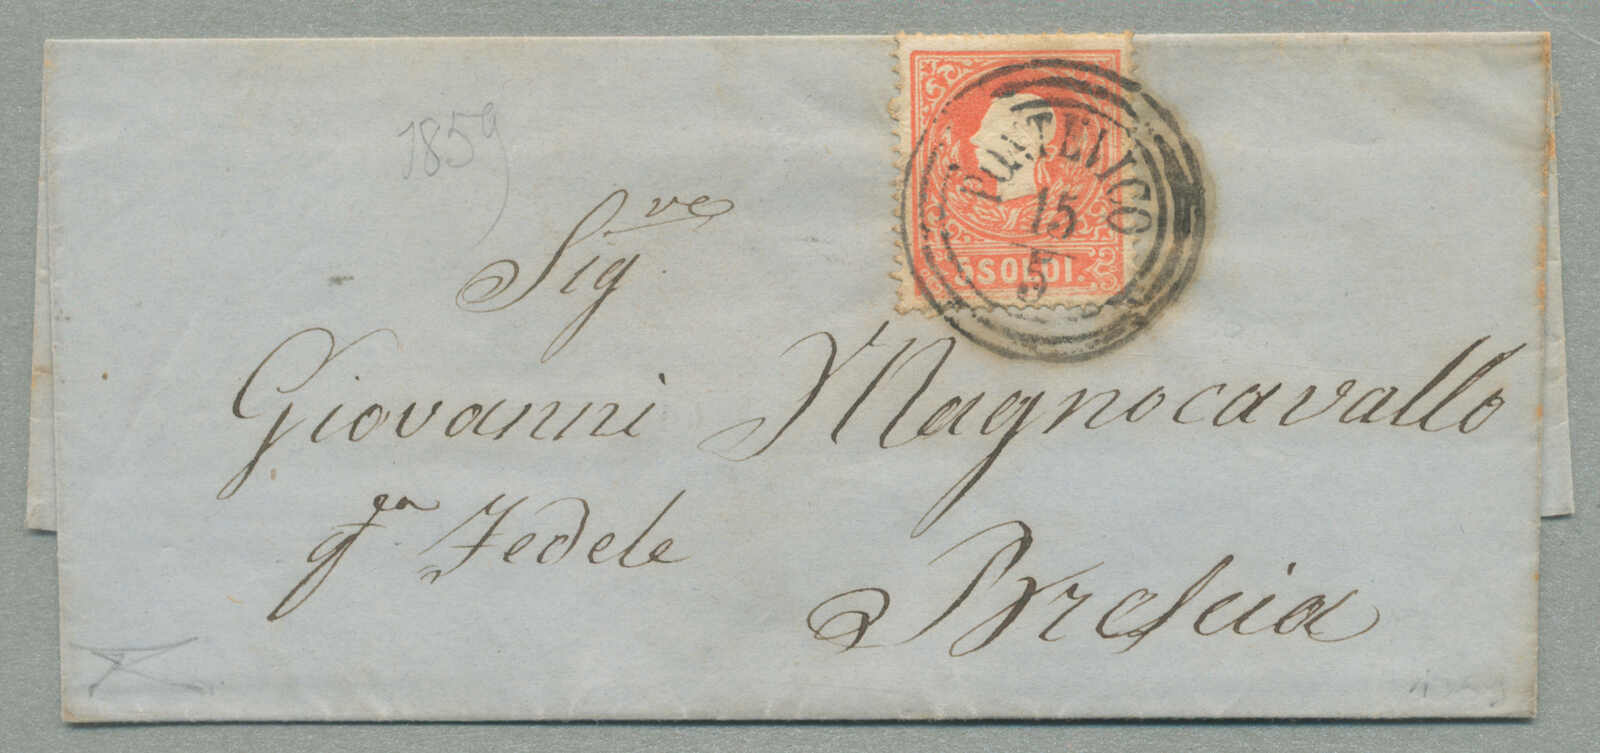 1859
PONTEVICO
15
5
5 SOLDI.
Sig.re
Giovanni Magnocavallo
qm Fedele
Brescia